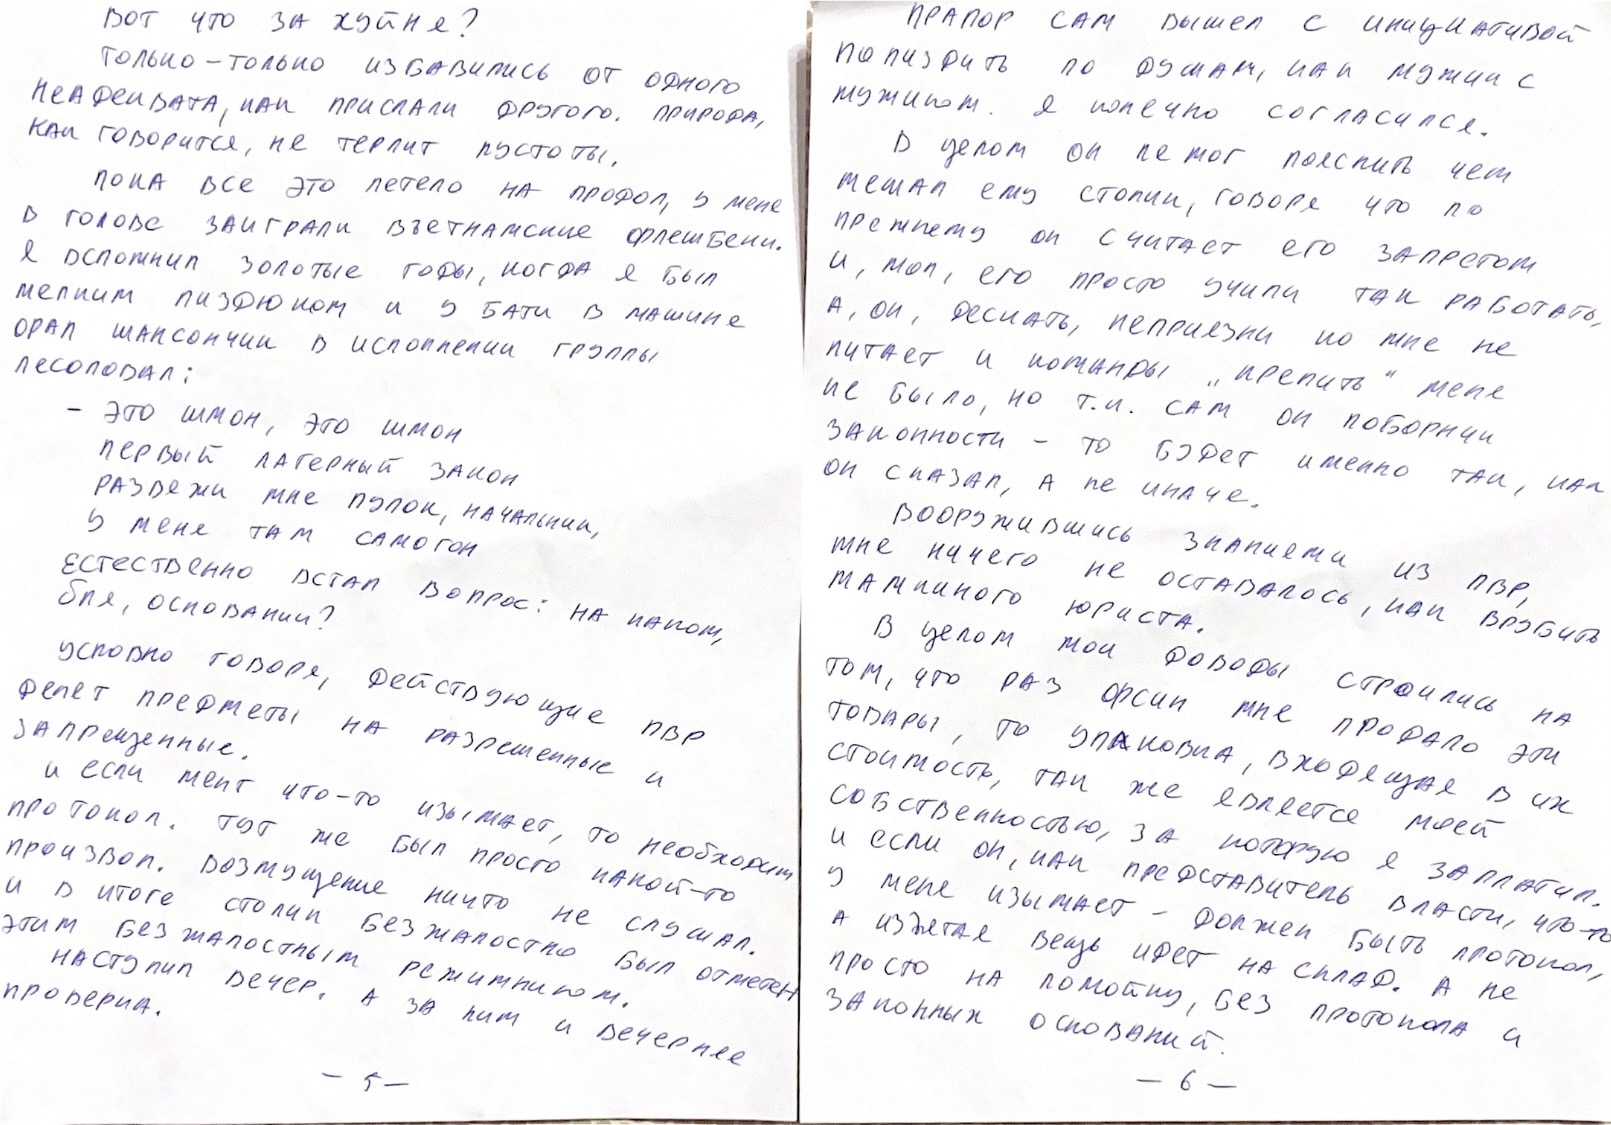 Вот что за хуйня?
Только-только избавились от одного
неадеквата, как прислали другого. Природа,
как говорится, не терпит пустоты.
Пока все это летело на продол, у меня
в голове заиграли вьетнамские флешбеки.
Я вспомнил золотые годы, когда я был
мелким пиздюком и у бати в машине
орал шансончик в исполнении группы
Лесоповал:
– Это шмон, это шмон
первый лагерный закон
развяжи мне пупок, начальник,
у меня там самогон
Естественно встал вопрос: на каком,
бля, основании?
Условно говоря, действующие ПВР
делят предметы на разрешенные и
запрещенные.
И если мент что-то изымает, то необходим
протокол. Тут же был просто какой-то
произвол. Возмущение никто не слушал.
И в итоге столик безжалостно был отметен
этим безжалостным режимником.
Наступил вечер. А за ним и вечерняя
проверка.
– 5 –
Прапор сам вышел с инициативой
попиздить по душам, как мужик с
мужиком. Я конечно согласился.
В целом он не мог пояснить чем
мешал ему столик, говоря что по
прежнему он считает его запретом
и, мол, его просто учили так работать,
а, он, дескать, неприязни ко мне не
питает и команды „крепить" меня
не было, но т.к. сам он поборник
законности – то будет именно так, как
он сказал, а не иначе.
Вооружившись знаниями из ПВР,
мне ничего не оставалось, как врубить
мамкиного юриста.
В целом мои доводы строились на
том, что раз ФСИН мне продало эти
товары, то упаковка, входящая в их
стоимость, так же является моей
собственностью, за которую я заплатил.
И если он, как представитель власти, что-то
у меня изымает – должен быть протокол,
а изъятая вещь идет на склад. А не
просто на помойку, без протокола и
законных оснований.
– 6 –